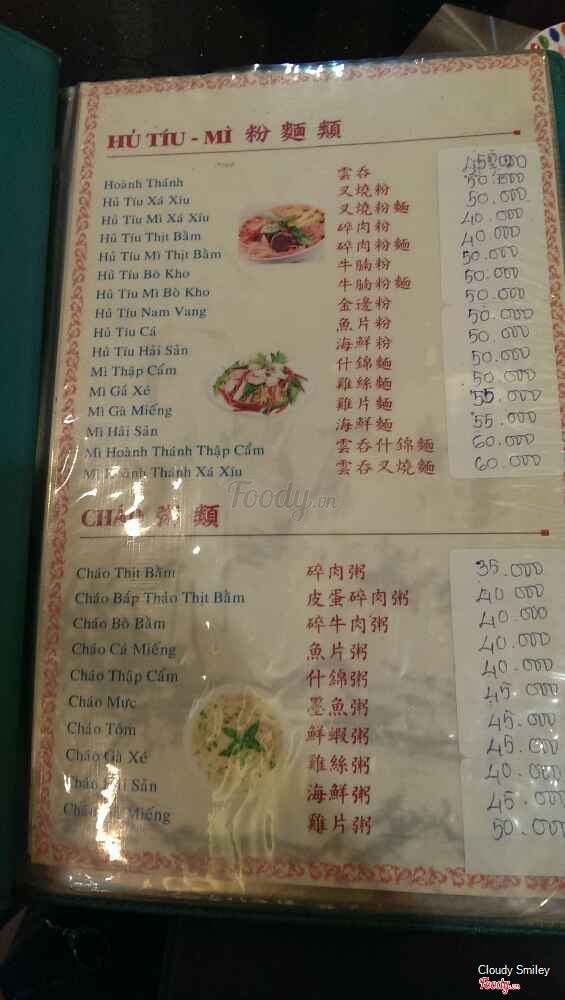 HỦ TÍU - MÌ 粉麵類
Hoành Thánh 雲吞 45.000
Hủ Tíu Xá Xíu 叉燒粉 50.000
Hủ Tíu Mì Xá Xíu 叉燒粉麵 50.000
Hủ Tíu Thịt Bằm 碎肉粉 40.000
Hủ Tíu Mì Thịt Bằm 碎肉粉麵 40.000
Hủ Tíu Bò Kho 牛腩粉 50.000
Hủ Tíu Mì Bò Kho 牛腩粉麵 50.000
Hủ Tíu Nam Vang 金邊粉 50.000
Hủ Tíu Cá 魚片粉 50.000
Hủ Tíu Hải Sản 海鮮粉 50.000
Mì Thập Cẩm 什錦麵 50.000
Mì Gà Xé 雞絲麵 50.000
Mì Gà Miếng 雞片麵 55.000
Mì Hải Sản 海鮮麵 55.000
Mì Hoành Thánh Thập Cẩm 雲吞什錦麵 60.000
Mì Hoành Thánh Xá Xíu 雲吞叉燒麵 60.000
Foody.vn
CHÁO 粥類
Cháo Thịt Bằm 碎肉粥 35.000
Cháo Bấp Thảo Thịt Bằm 皮蛋碎肉粥 40.000
Cháo Bò Bằm 碎牛肉粥 40.000
Cháo Cá Miếng 魚片粥 40.000
Cháo Thập Cẩm 什錦粥 40.000
Cháo Mực 墨魚粥 45.000
Cháo Tôm 鮮蝦粥 45.000
Cháo Gà Xé 雞絲粥 45.000
Cháo Hải Sản 海鮮粥 40.000
Cháo Gà Miếng 雞片粥 45.000
50.000
Cloudy Smiley
Foody.vn